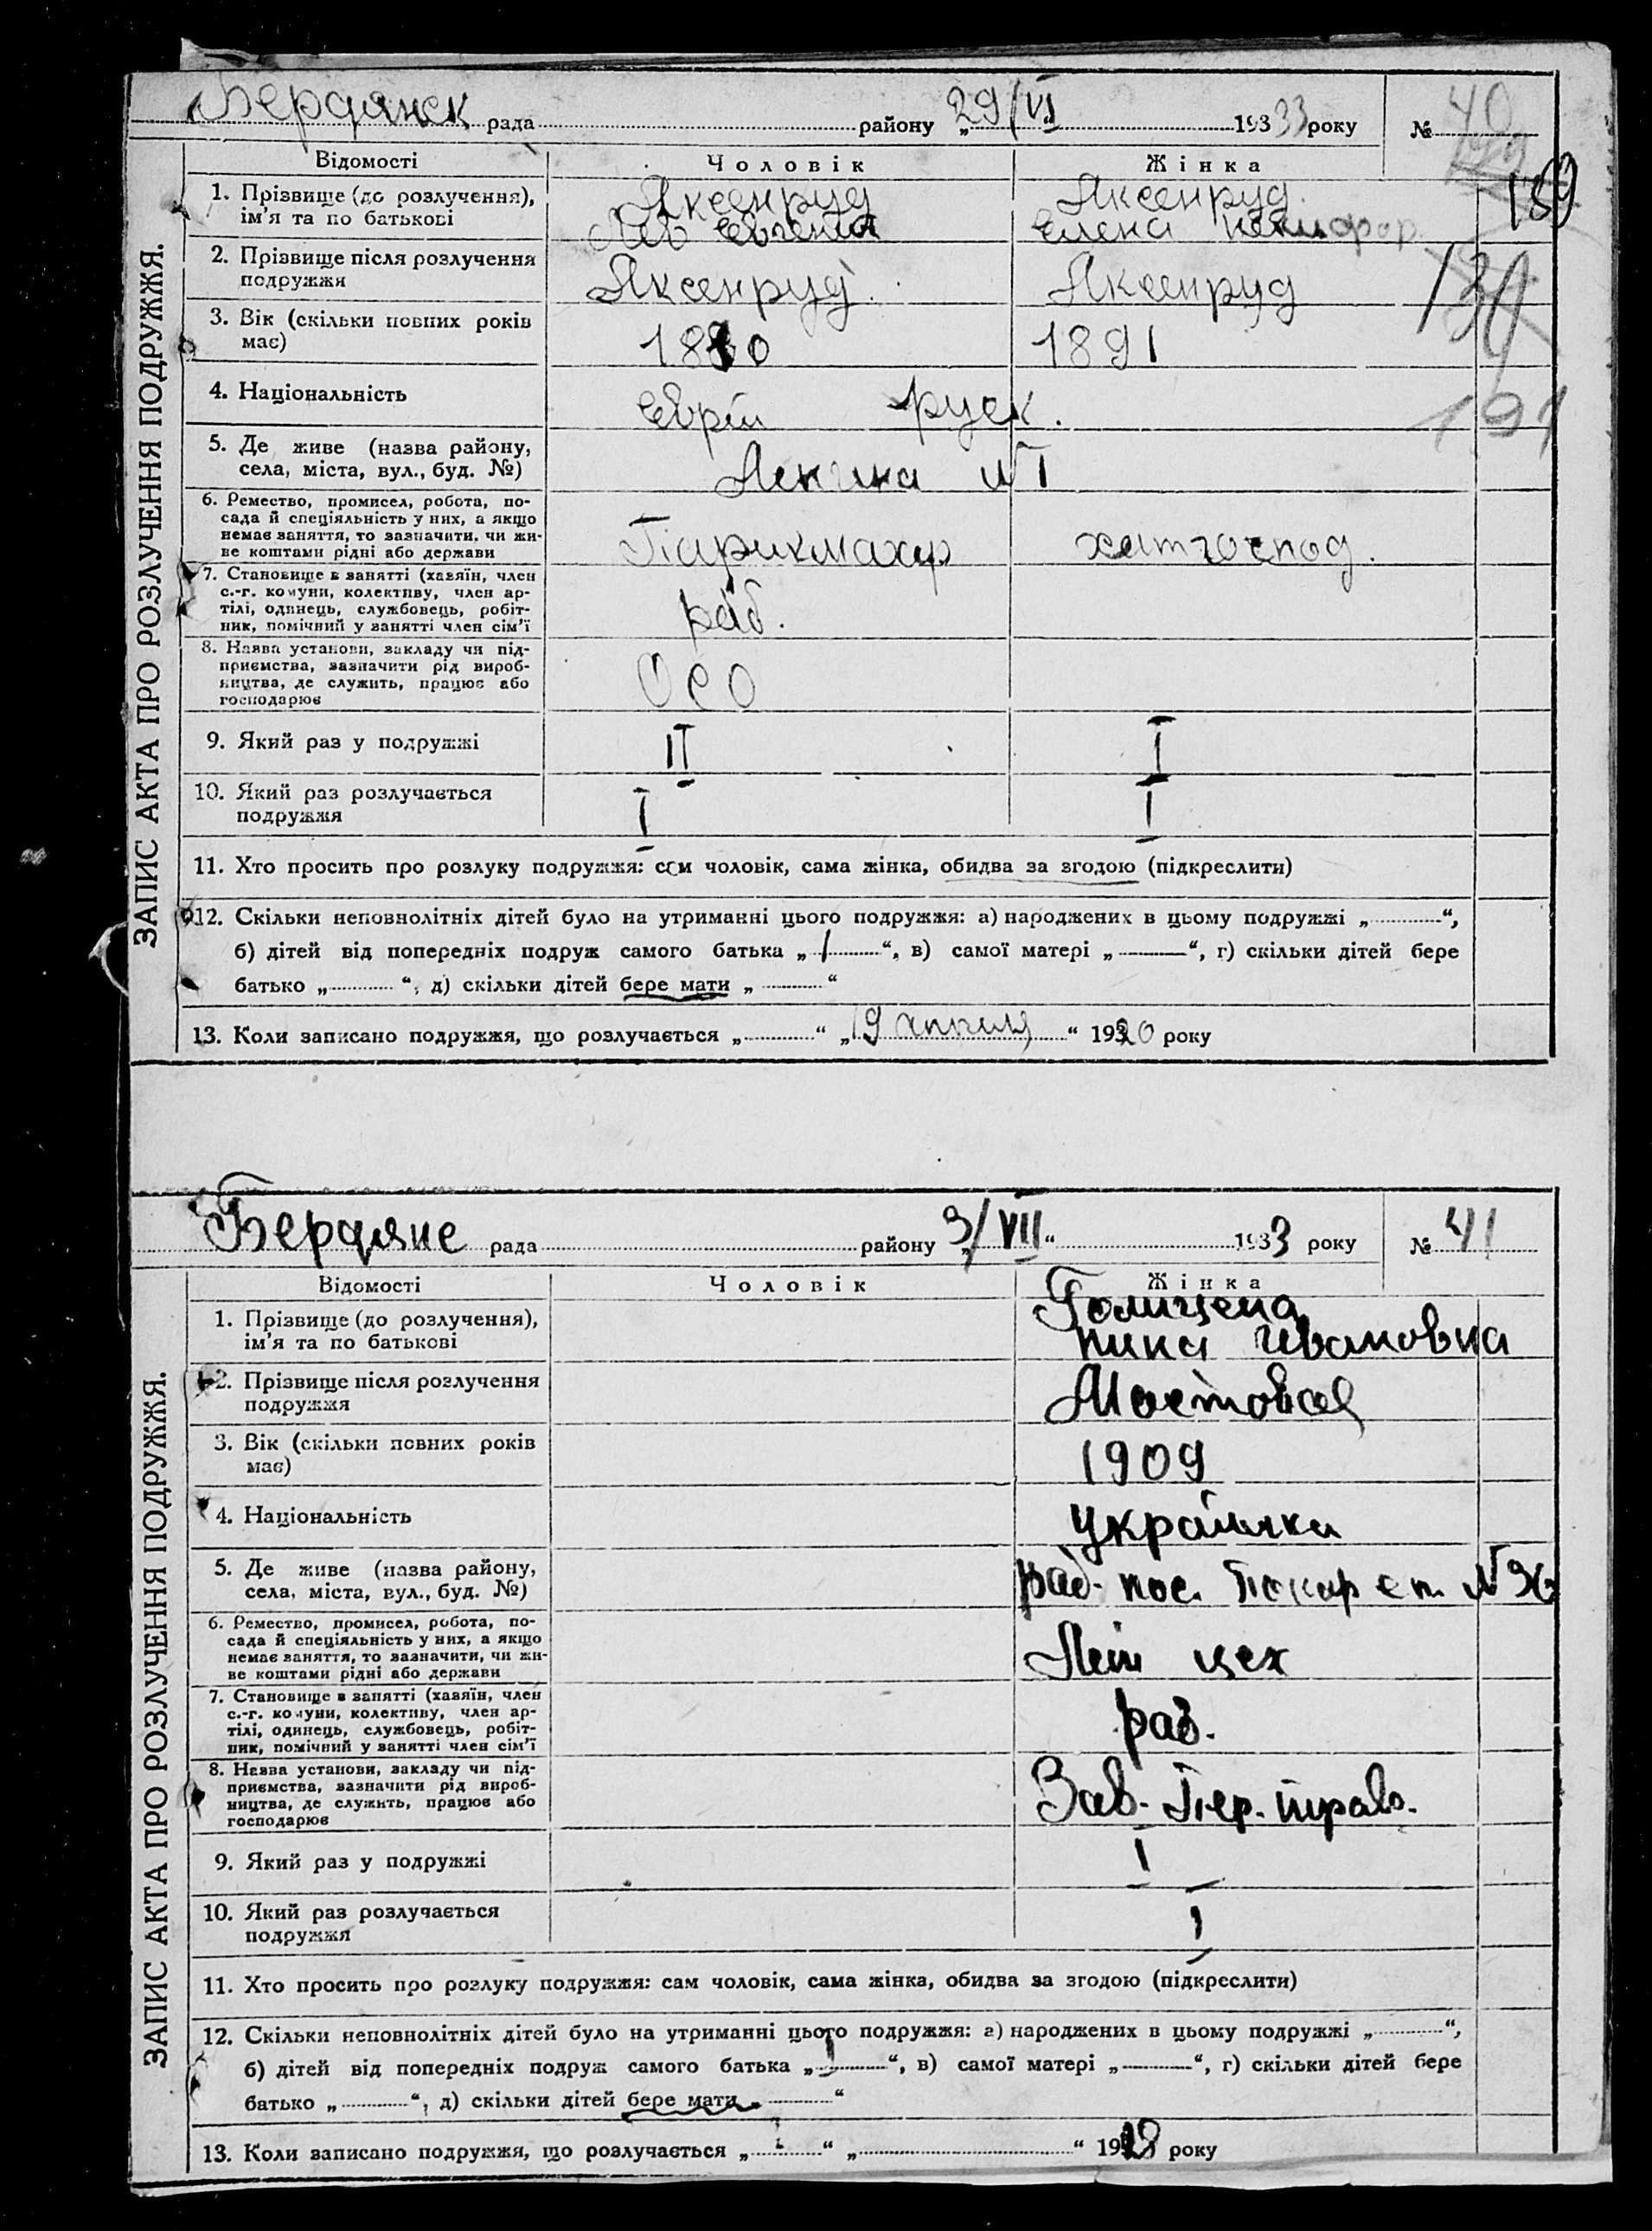 ЗАПИС АКТА ПРО РОЗЛУЧЕННЯ ПОДРУЖЖЯ.
Бердянск рада району „29/VI 1933 року № 40
139
Відомості Чоловік Жінка
1. Прізвище (до розлучення), Аксенруд Аксенруд
ім'я та по батькові Лев Евгения Елена Никифор.
2. Прізвище після розлучення Аксенруд Аксенруд
подружжя
3. Вік (скільки повних років 1891
має)
4. Національність Єврей руск.
191
5. Де живе (назва району, Ленина №1
села, міста, вул., буд. №)
6. Ремество, промисел, робота, по-
сада й спеціяльність у них, а якщо
немає заняття, то зазначити, чи жи- Парикмахер хатгоспод.
ве коштами рідні або держави
7. Становище в занятті (хазяїн, член
с.-г. комуни, колективу, член ар-
тілі, одинець, службовець, робіт- раб.
ник, помічний у занятті член сім'ї
8. Назва установи, закладу чи під-
приємства, зазначити рід вироб-
ництва, де служить, працює або ОСО
господарює
9. Який раз у подружжі II I
10. Який раз розлучається I I
подружжя
11. Хто просить про розлуку подружжя: сам чоловік, сама жінка, обидва за згодою (підкреслити)
12. Скільки неповнолітніх дітей було на утриманні цього подружжя: а) народжених в цьому подружжі „ “,
б) дітей від попередніх подруж самого батька „ 1 “, в) самої матері „ — “, г) скільки дітей бере
батько „ “, д) скільки дітей бере мати „ “
13. Коли записано подружжя, що розлучається „ “ „19 апреля “ 1920 року
ЗАПИС АКТА ПРО РОЗЛУЧЕННЯ ПОДРУЖЖЯ.
Бердянс рада району „3/VII“ 1933 року № 41
Відомості Чоловік Жінка
1. Прізвище (до розлучення),
ім'я та по батькові Нина Ивановна
2. Прізвище після розлучення Мостовая
подружжя
3. Вік (скільки повних років 1909
має)
4. Національність Українка
5. Де живе (назва району, Раб. пос.
села, міста, вул., буд. №)
6. Ремество, промисел, робота, по-
сада й спеціяльність у них, а якщо
немає заняття, то зазначити, чи жи- цех
ве коштами рідні або держави
7. Становище в занятті (хазяїн, член
с.-г. комуни, колективу, член ар-
тілі, одинець, службовець, робіт- раб.
ник, помічний у занятті член сім'ї
8. Назва установи, закладу чи під-
приємства, зазначити рід вироб-
ництва, де служить, працює або Зав. Пер. трав.
господарює
9. Який раз у подружжі I
10. Який раз розлучається I
подружжя
11. Хто просить про розлуку подружжя: сам чоловік, сама жінка, обидва за згодою (підкреслити)
12. Скільки неповнолітніх дітей було на утриманні цього подружжя: а) народжених в цьому подружжі „ “,
б) дітей від попередніх подруж самого батька „ 1 “, в) самої матері „ — “, г) скільки дітей бере
батько „ “, д) скільки дітей бере мати „ “
13. Коли записано подружжя, що розлучається „ “ „ “ 1928 року